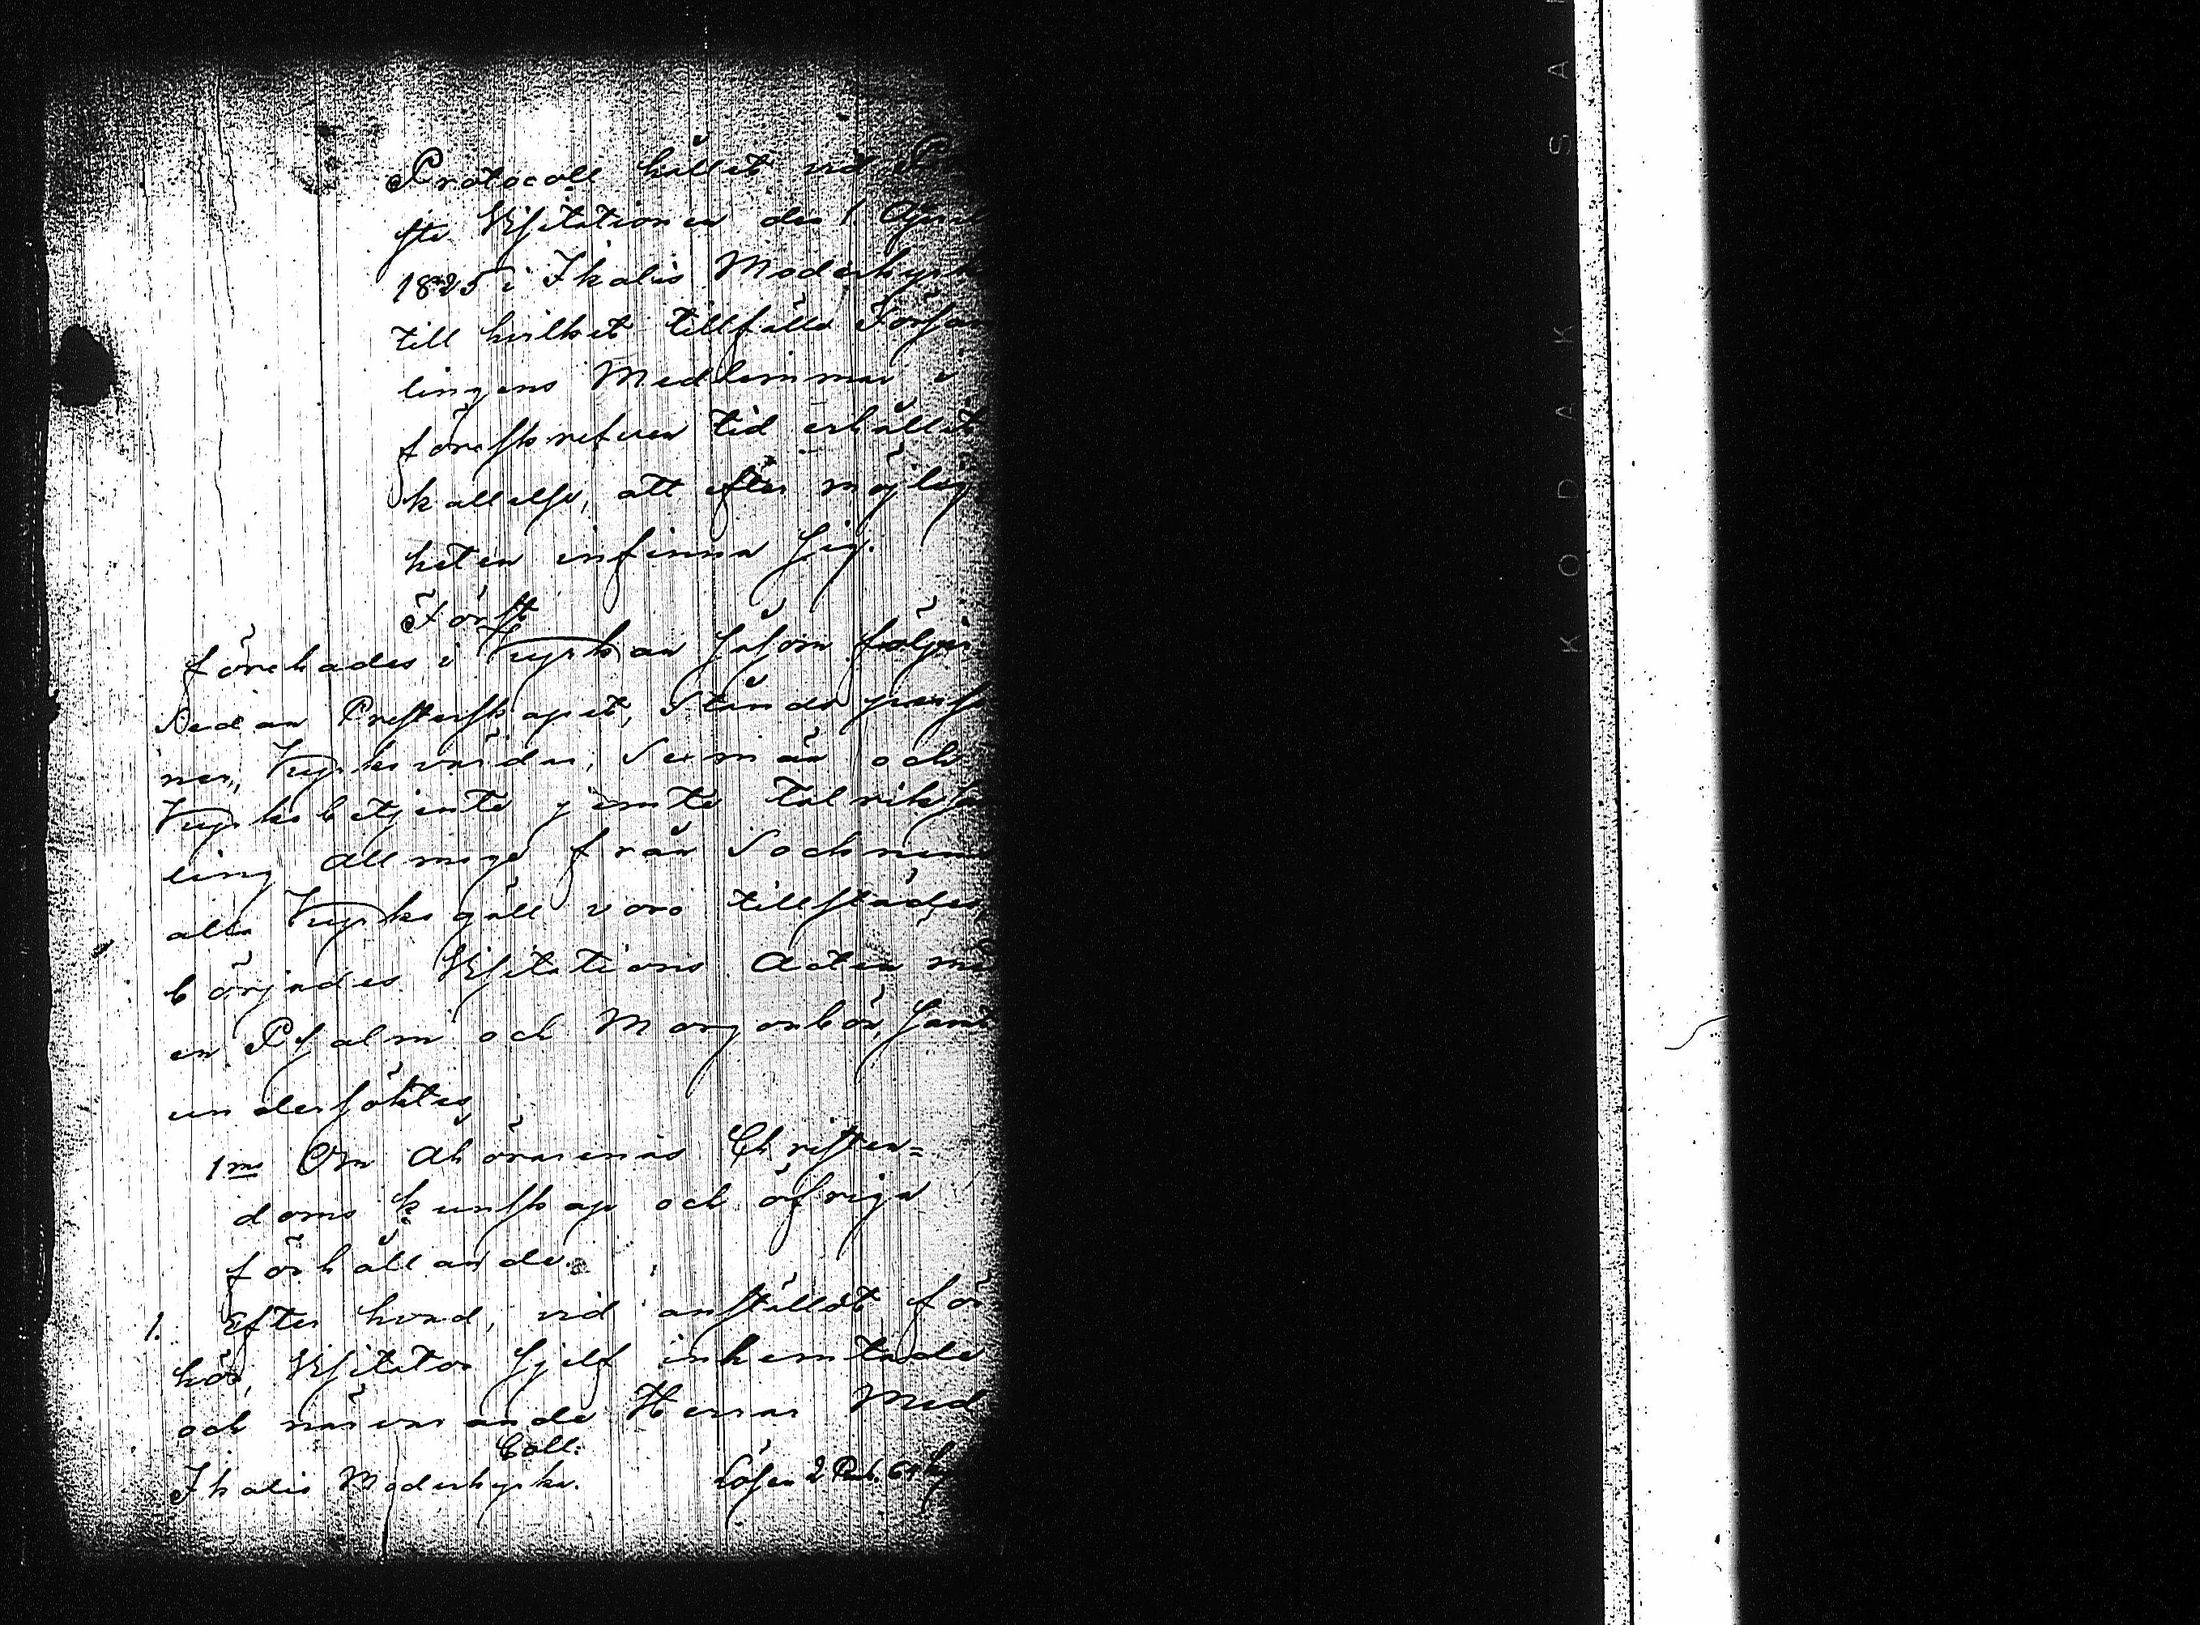 Protocoll hållit vid Pro
ste Visitationen den 1 April
1825 i Ikalis Moderkyrk
till hvilket tillfälle Försam
lingens Medlemmar i
föreskrefven tid erhållit
kallelse, att efter möjlig
heten infinna sig.
Först
förehades i Kyrkan såsom följer:
Sedan Presterskapet, Stånds perso
ner, Kyrkovärdar, Sexmän och
Kyrkobetjente jemte talrik sam
ling Allmoge från Socknene
alla Kyrkogäll voro tillstädes,
börjades Visitations Acten med
en Psalm och Morgonbön, samt
undersöktes,
1mo Om Åhörarenas Christen=
doms kunskap och öfriga
förhållande.
1. Efter hvad, vid anstäldt för
hör, Visitator sjelf inhemtade
och närvarande Herrar Med
Coll:
Ikalis Moderkyrka. Lösen 2 Rub.
KODAK SA